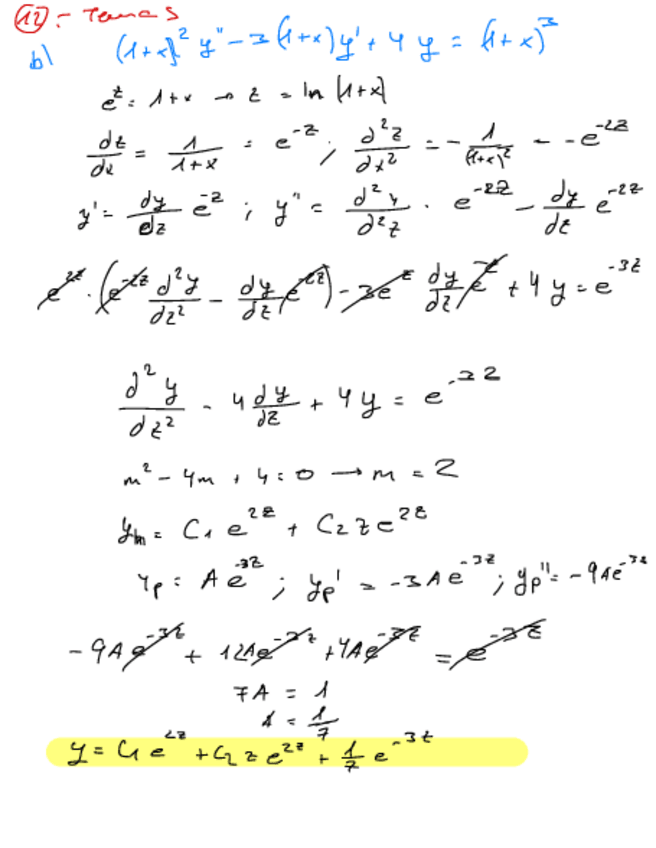 12 :- Tema 5
b) (1+x)² y'' - 3(1+x)y' + 4y = (1+x)³
e^z = 1+x → z = ln(1+x)
dz/dx = 1/(1+x) = e^-z ; d²z/dx² = - 1/(1+x)² = -e^-2z
y' = dy/dz e^-z ; y'' = d²y/d²z · e^-2z - dy/dz e^-2z
e^2z · (e^-2z d²y/dz² - dy/dz e^-2z) - 3e^z dy/dz e^-z + 4y = e^-3z
d²y/dz² - 4 dy/dz + 4y = e^-3z
m² - 4m + 4 = 0 → m = 2
yh = C1 e^2z + C2 z e^2z
yp = A e^-3z ; yp' = -3A e^-3z ; yp'' = -9Ae^-3z
-9A e^-3z + 12A e^-3z + 4A e^-3z = e^-3z
7A = 1
A = 1/7
y = C1 e^2z + C2 z e^2z + 1/7 e^-3z